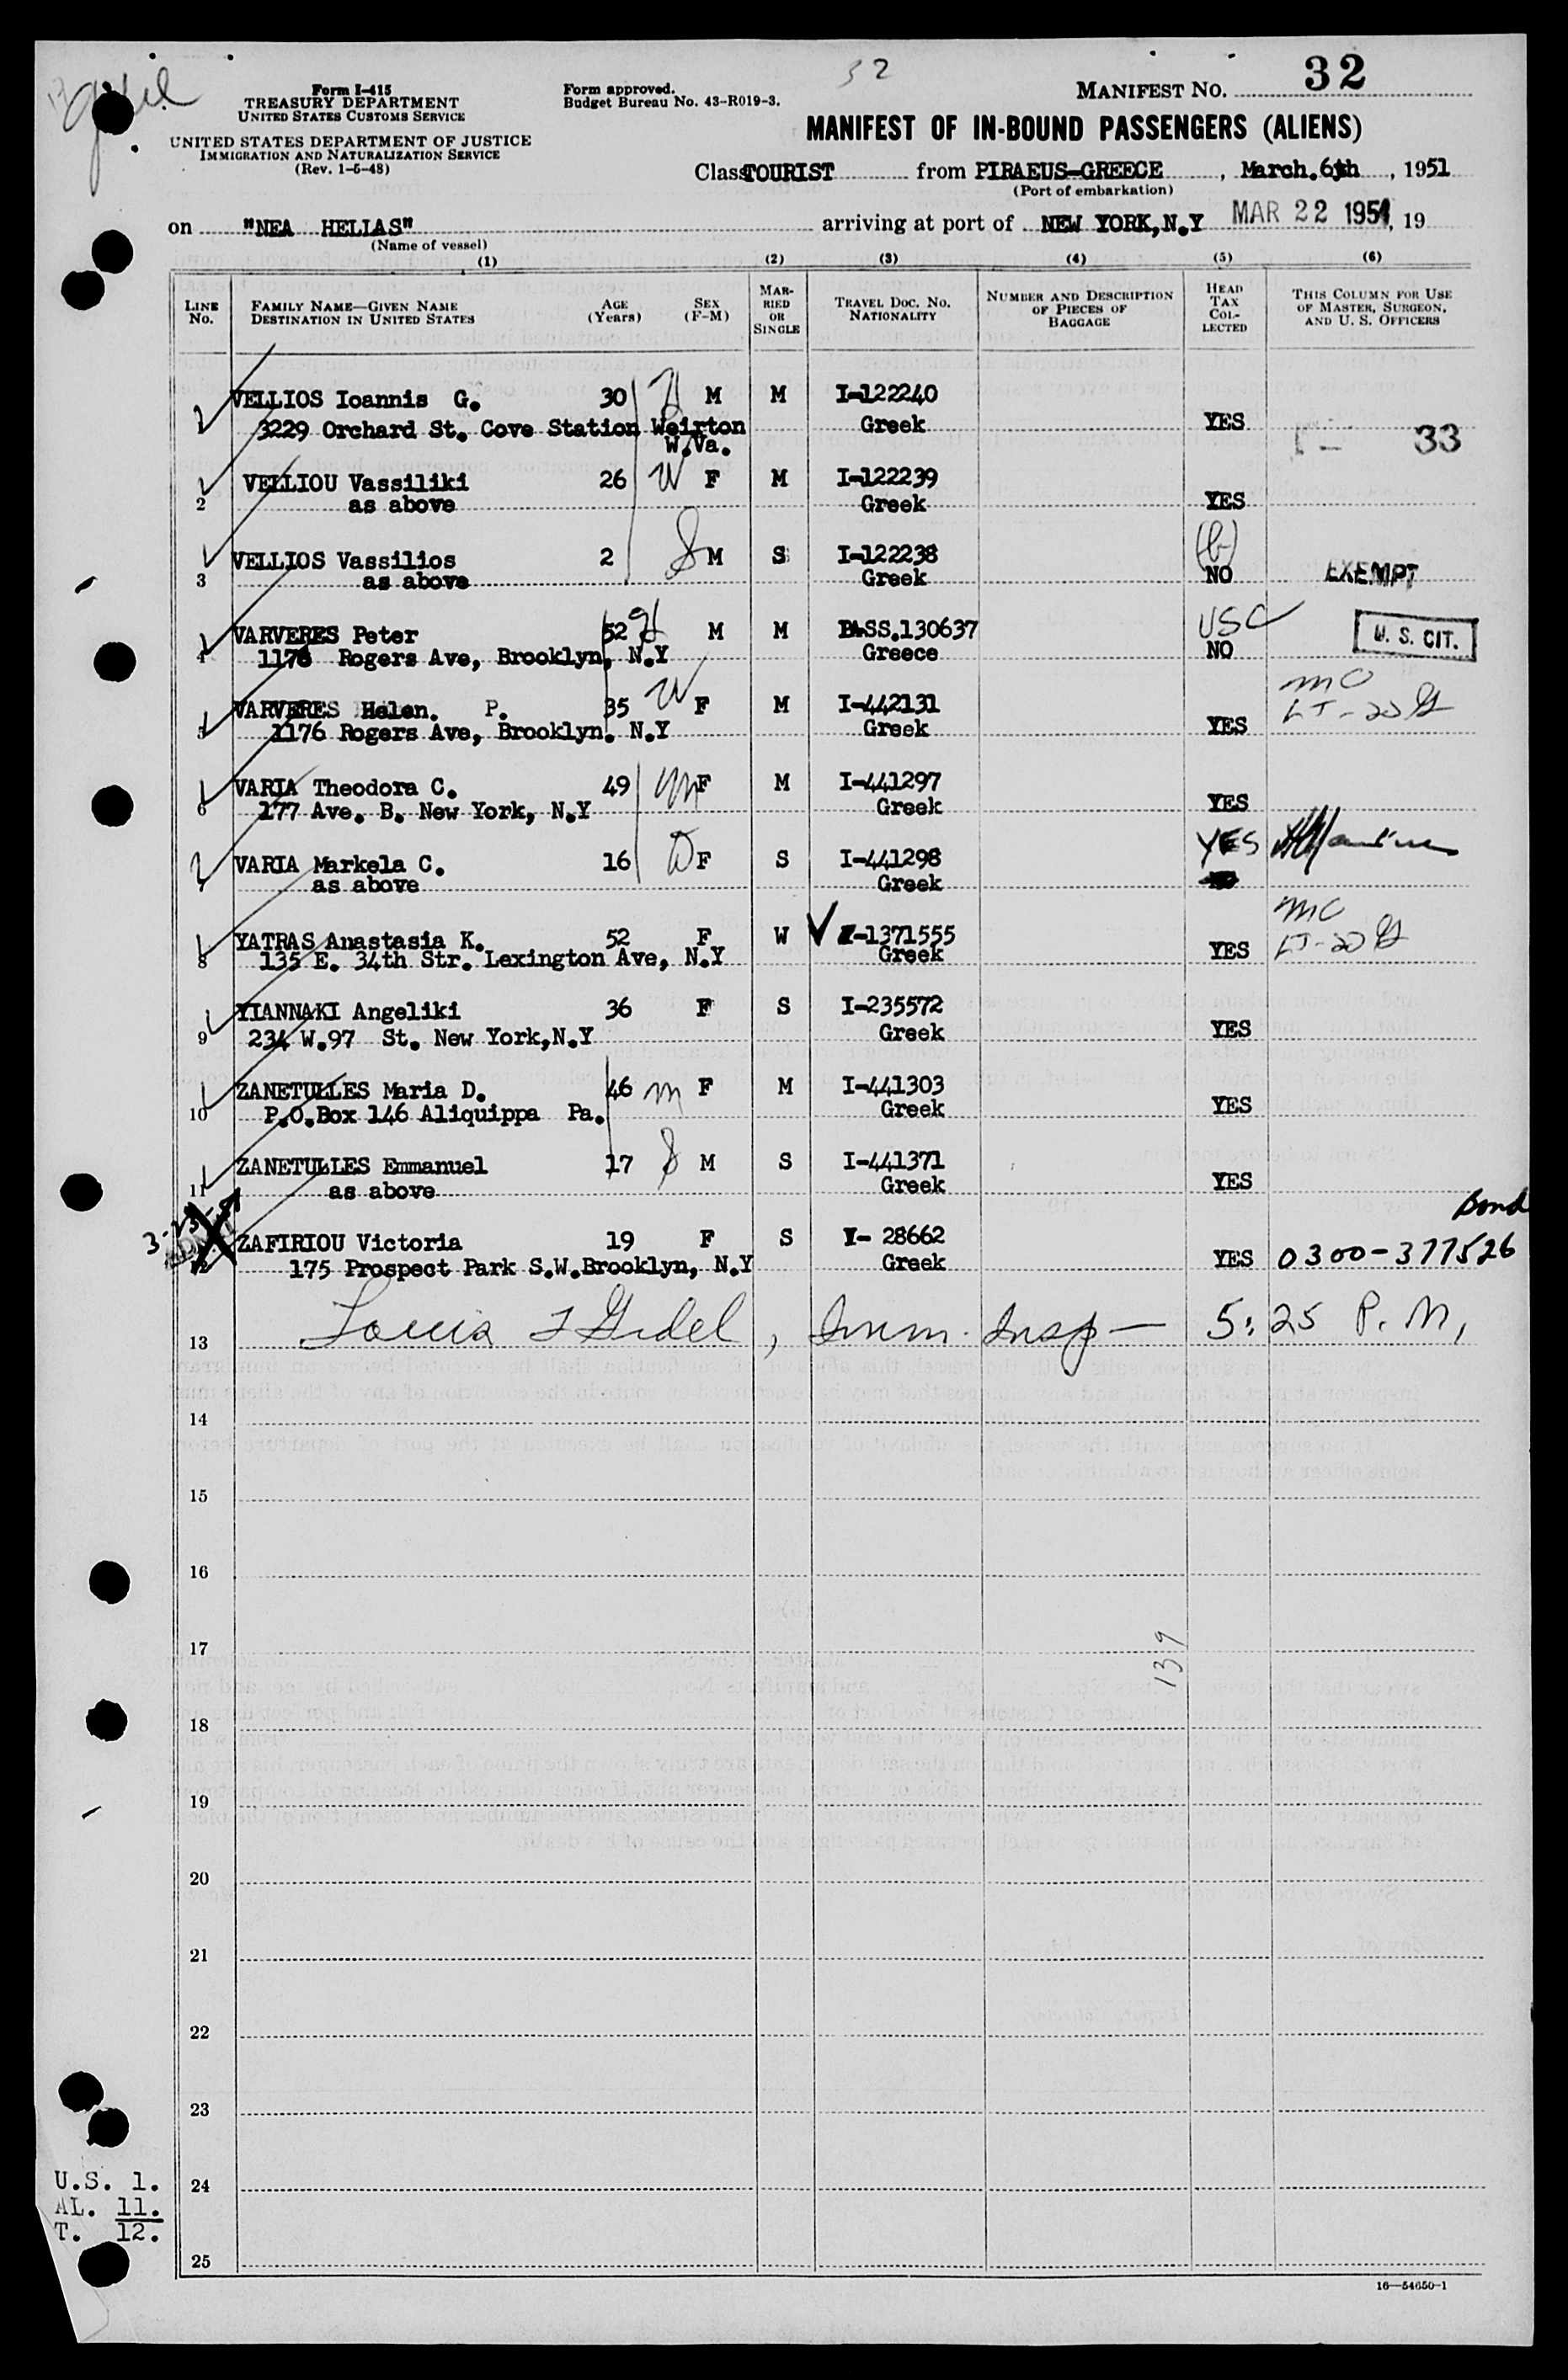 32
Form I-415
TREASURY DEPARTMENT
UNITED STATES CUSTOMS SERVICE
UNITED STATES DEPARTMENT OF JUSTICE
IMMIGRATION AND NATURALIZATION SERVICE
(Rev. 1-5-48)
Form approved.
Budget Bureau No. 43-R019-3.
MANIFEST NO. 32
MANIFEST OF IN-BOUND PASSENGERS (ALIENS)
Class TOURIST from PIRAEUS-GREECE, March.6th, 1951
(Port of embarkation)
on "NEA HELLAS" arriving at port of NEW YORK,N.Y MAR 22 1951, 19
(Name of vessel)
(1) (2) (3) (4) (5) (6)
LINE No. FAMILY NAME—GIVEN NAME DESTINATION IN UNITED STATES AGE (Years) SEX (F-M) MARRIED OR SINGLE TRAVEL DOC. NO. NATIONALITY NUMBER AND DESCRIPTION OF PIECES OF BAGGAGE HEAD TAX COLLECTED THIS COLUMN FOR USE OF MASTER, SURGEON, AND U. S. OFFICERS
VELLIOS Ioannis G. 30 M M I-122240
3229 Orchard St. Cove Station Weirton Greek YES 33
W.Va.
VELLIOU Vassiliki 26 W F M I-122239
2 as above Greek YES
VELLIOS Vassilios 2 M S I-122238
3 as above Greek NO EXEMPT
VARVERES Peter 52 M M PASS.130637 USC U. S. CIT.
4 1176 Rogers Ave, Brooklyn, N.Y Greece NO
VARVERES Helen. P. 35 W F M I-442131 mc
5 1176 Rogers Ave, Brooklyn. N.Y Greek YES
VARIA Theodora C. 49 F M I-441297
6 177 Ave. B. New York, N.Y Greek YES
VARIA Markela C. 16 D F S I-441298 YES
7 as above Greek
YATRAS Anastasia K. 52 F W I-1371555 mc
8 135 E. 34th Str. Lexington Ave, N.Y Greek YES
YIANNAKI Angeliki 36 F S I-235572
9 234 W.97 St. New York,N.Y Greek YES
ZANETULLES Maria D. 46 m F M I-441303
10 P.O.Box 146 Aliquippa Pa. Greek YES
ZANETULLES Emmanuel 17 M S I-441371
11 as above Greek YES
Bond
ZAFIRIOU Victoria 19 F S V- 28662
12 175 Prospect Park S.W.Brooklyn, N.Y Greek YES 0300-377526
13 Louis Gidel, Imm. Insp — 5:25 P.M.
14
15
16
17
139
18
19
20
21
22
23
24
25
U.S. 1.
AL. 11.
T. 12.
16—54650-1